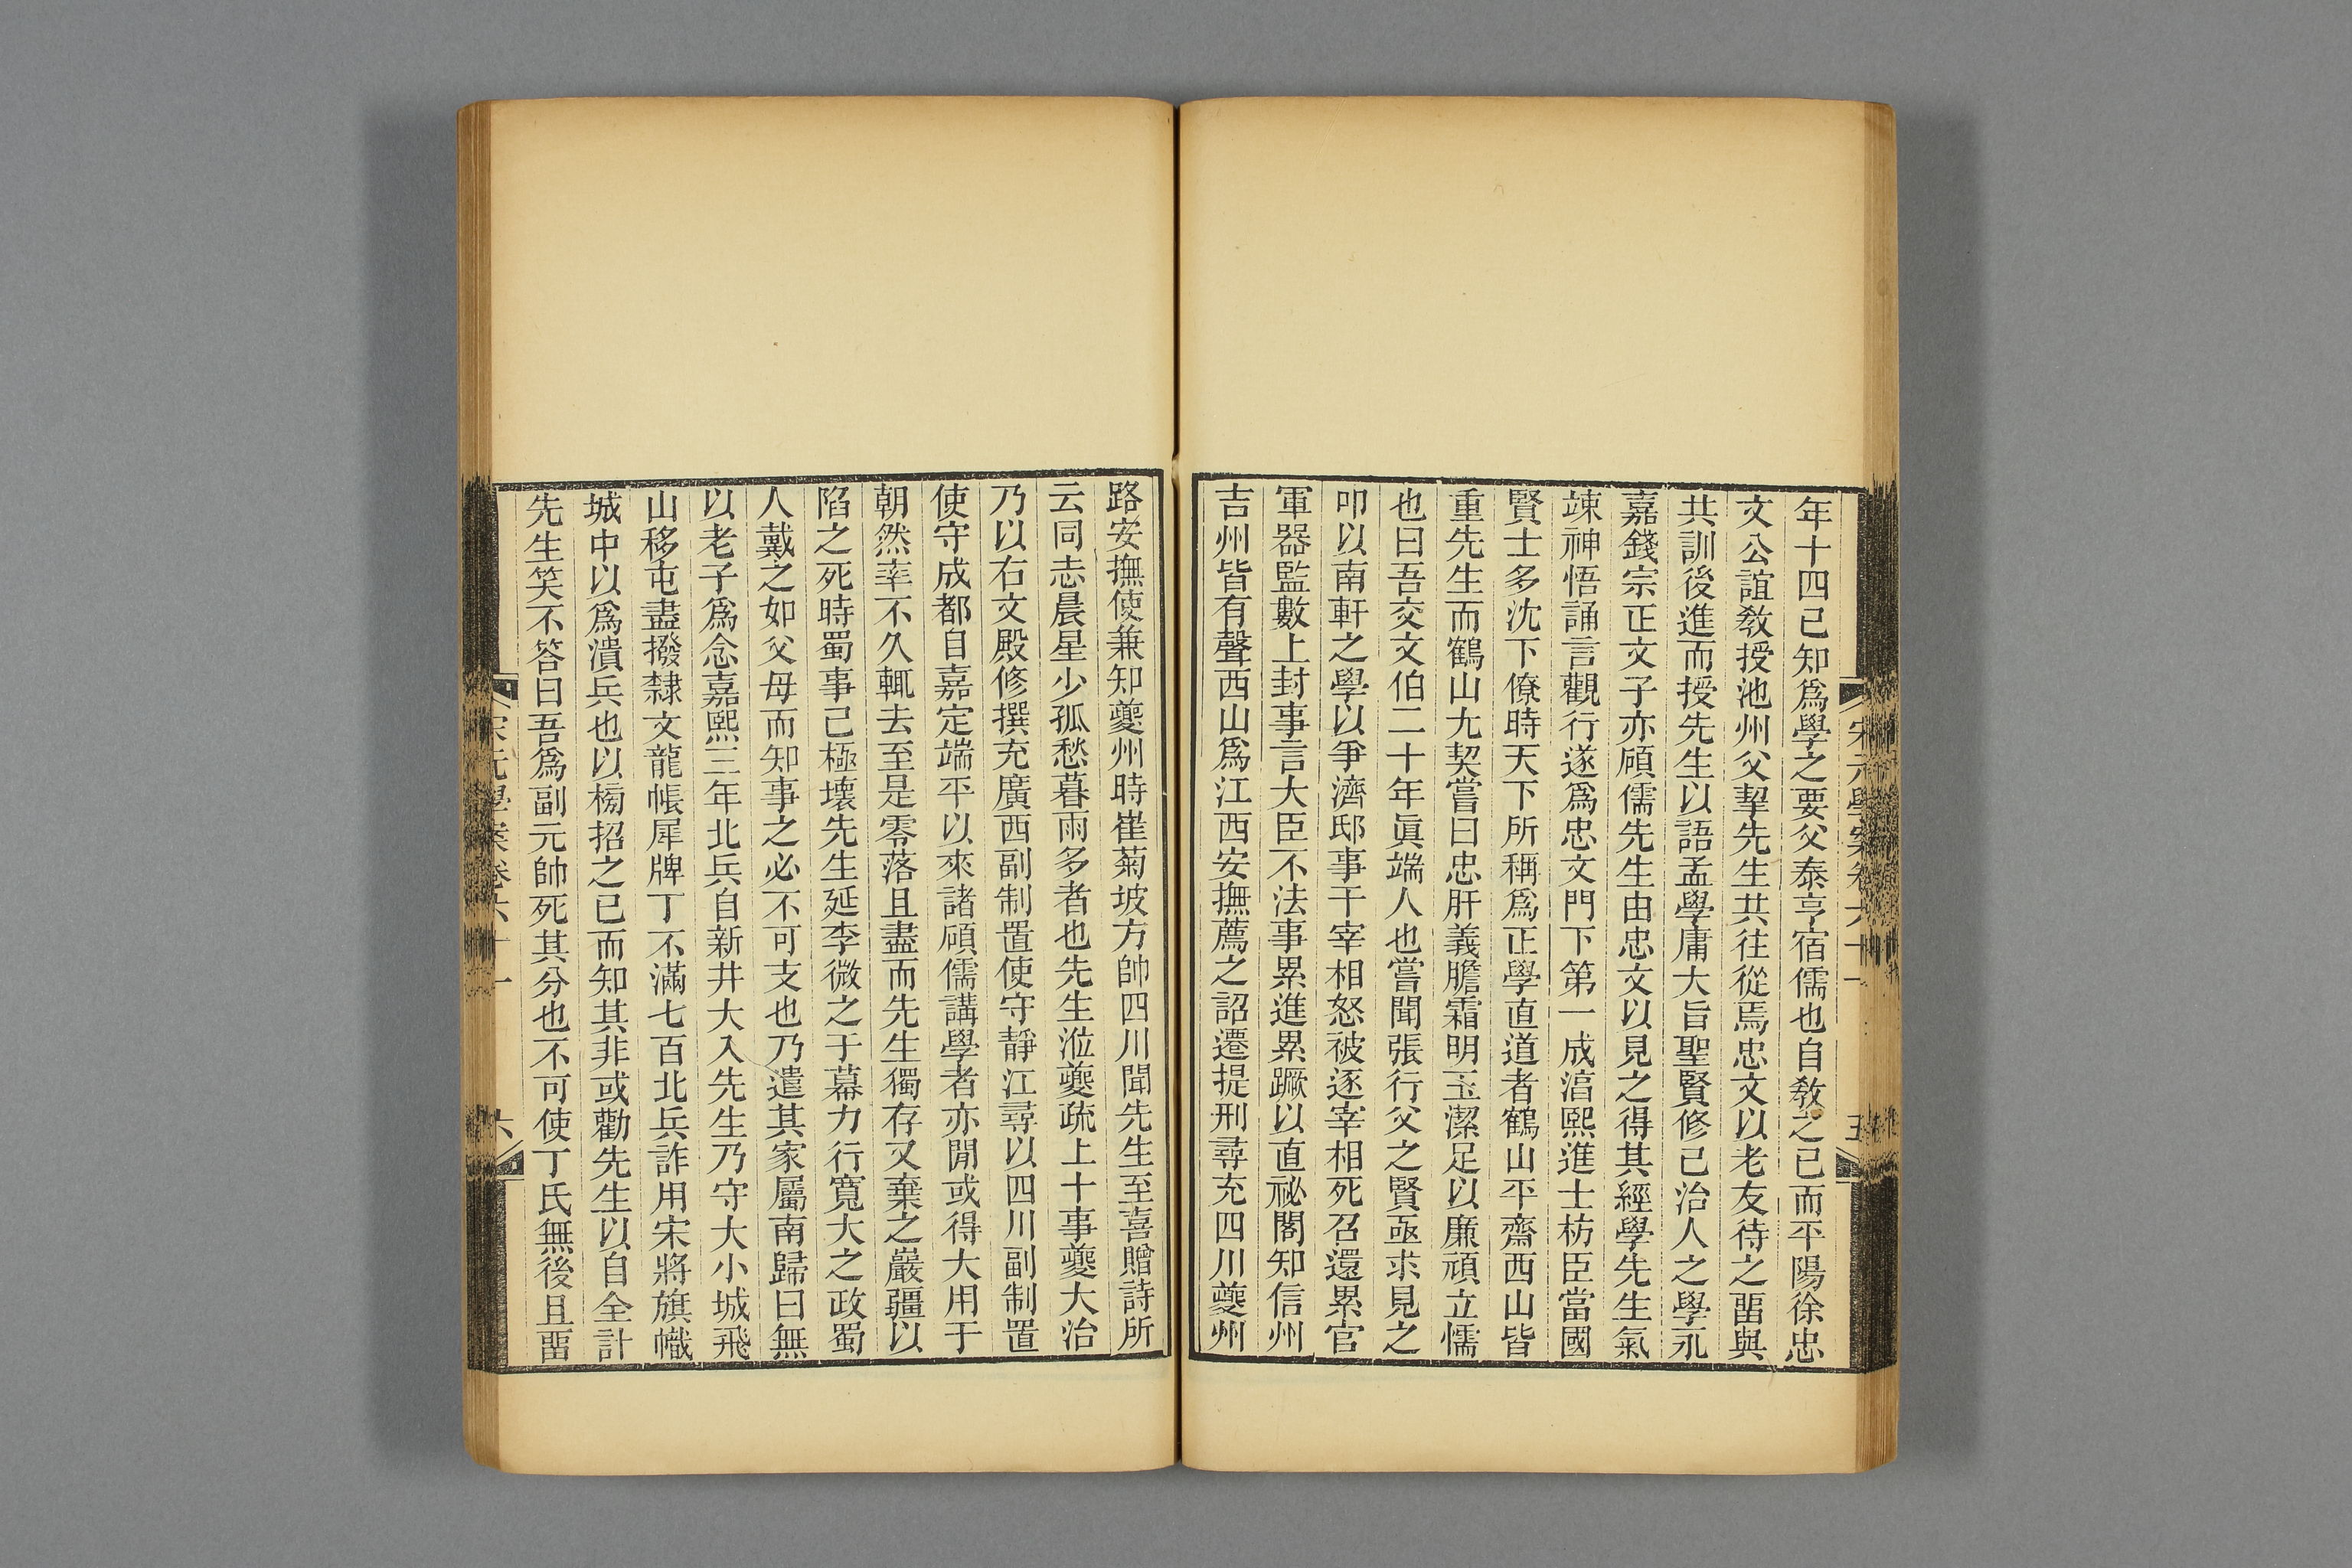 年十四已知爲學之要父泰亨宿儒也自敎之已而平陽徐忠
文公誼敎授池州父挈先生共往從焉忠文以老友待之畱與
共訓後進而授先生以語孟學庸大旨聖賢修己治人之學永
嘉錢宗正文子亦碩儒先生由忠文以見之得其經學先生氣
竦神悟誦言觀行遂爲忠文門下第一成湻熙進士枋臣當國
賢士多沈下僚時天下所稱爲正學直道者鶴山平齋西山皆
重先生而鶴山尢契嘗曰忠肝義膽霜明玉潔足以廉頑立懦
也曰吾交文伯二十年眞端人也嘗聞張行父之賢亟求見之
叩以南軒之學以爭濟邸事干宰相怒被逐宰相死召還累官
軍器監數上封事言大臣不法事累進累蹶以直祕閣知信州
吉州皆有聲西山爲江西安撫薦之詔遷提刑尋充四川夔州
宋元學案卷六十一
五
路安撫使兼知夔州時崔菊坡方帥四川聞先生至喜贈詩所
云同志晨星少孤愁暮雨多者也先生涖夔疏上十事夔大治
乃以右文殿修撰充廣西副制置使守靜江尋以四川副制置
使守成都自嘉定端平以來諸碩儒講學者亦閒或得大用于
朝然率不久輒去至是零落且盡而先生獨存又棄之巖疆以
陷之死時蜀事已極壞先生延李微之于幕力行寬大之政蜀
人戴之如父母而知事之必不可支也乃遣其家屬南歸曰無
以老子爲念嘉熙三年北兵自新井大入先生乃守大小城飛
山移屯盡撥隸文龍帳犀牌丁不滿七百北兵詐用宋將旗幟
城中以爲潰兵也以榜招之已而知其非或勸先生以自全計
先生笑不答曰吾爲副元帥死其分也不可使丁氏無後且畱
宋元學案卷六十一
六